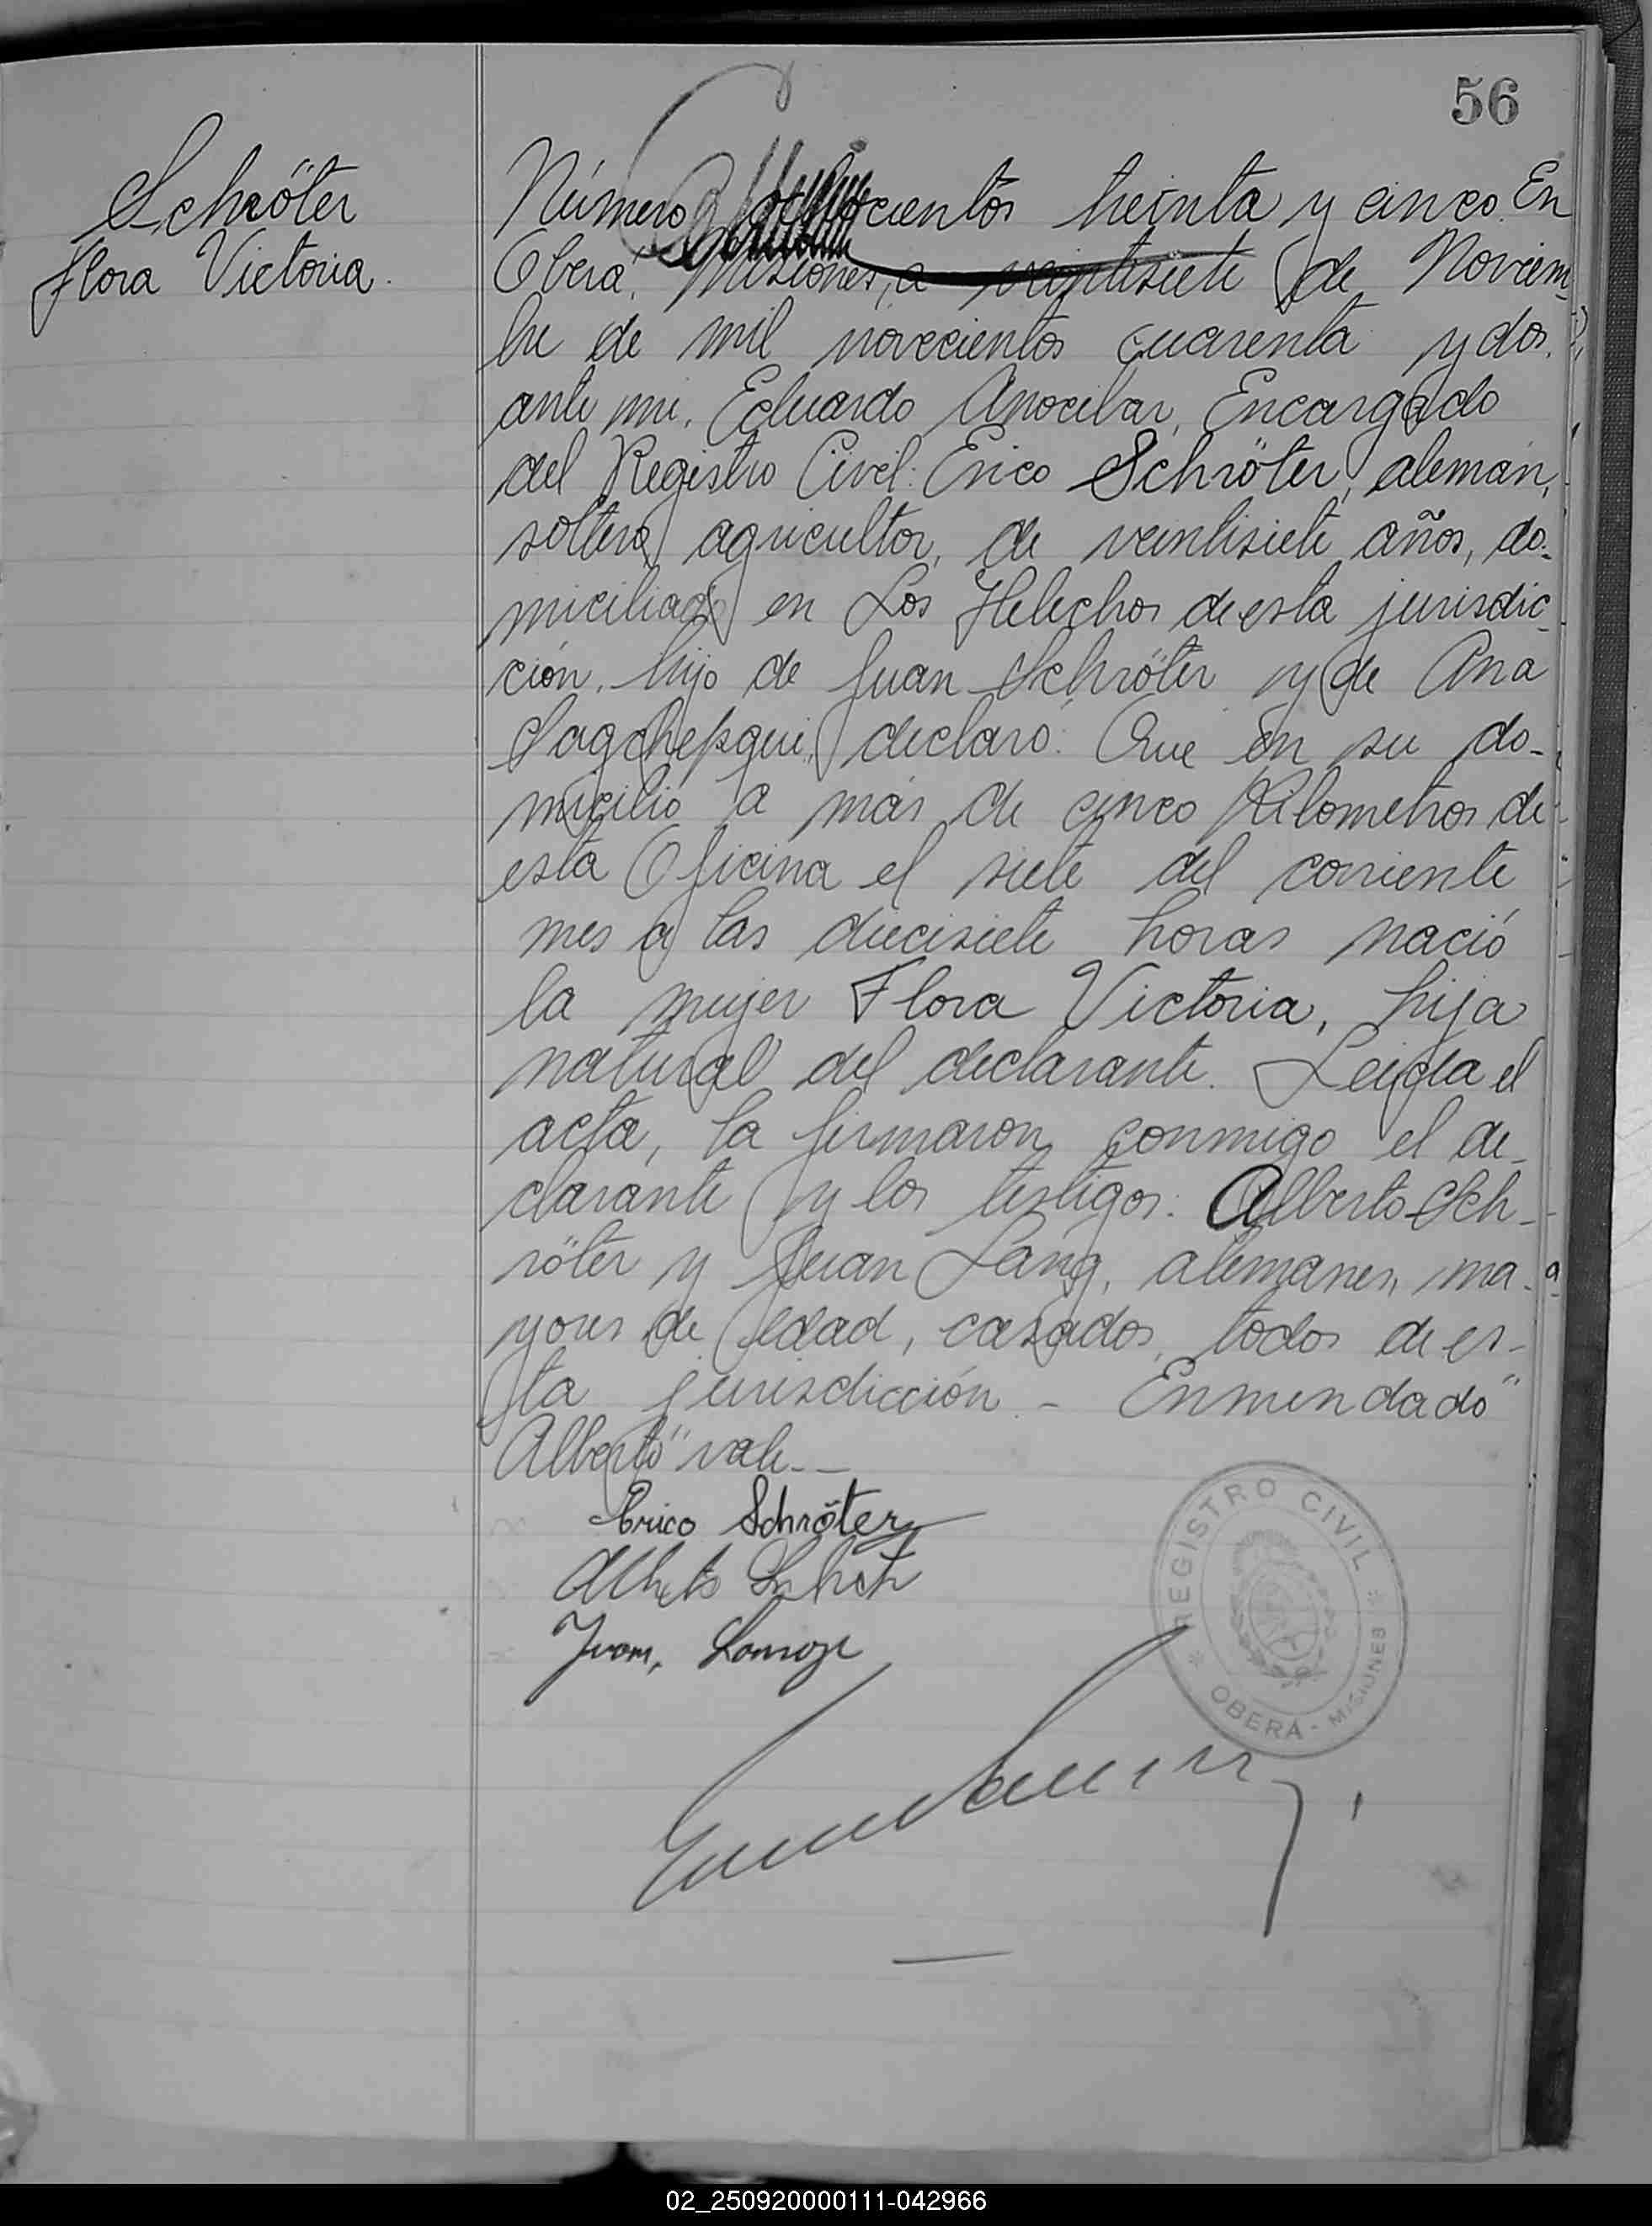 56
Schröter
Flora Victoria.
Número ochocientos treinta y cinco. En
Oberá, Misiones, a veintisiete de Noviem
bre de mil novecientos cuarenta y dos.
ante mi, Eduardo Anocibar, Encargado
del Registro Civil: Erico Schröter, alemán,
soltero, agricultor, de veintisiete años, do-
miciliado en Los Helechos de esta jurisdic-
ción, hijo de Juan Schröter y de Ana
declaró: Que en su do-
micilio a más de cinco Kilometros de
esta Oficina el siete del corriente
mes a las diecisiete horas nació
la mujer Flora Victoria, hija
natural del declarante. Leída el
acta, la firmaron conmigo el de-
clarante y los testigos: Alberto Sch-
röter y Juan Lang, alemanes, ma-
yores de edad, casados, todos de es-
ta jurisdicción. - Enmendado "
Alberto" vale. -
Erico Schröter
REGISTRO CIVIL
OBERÁ - MISIONES
02_250920000111-042966